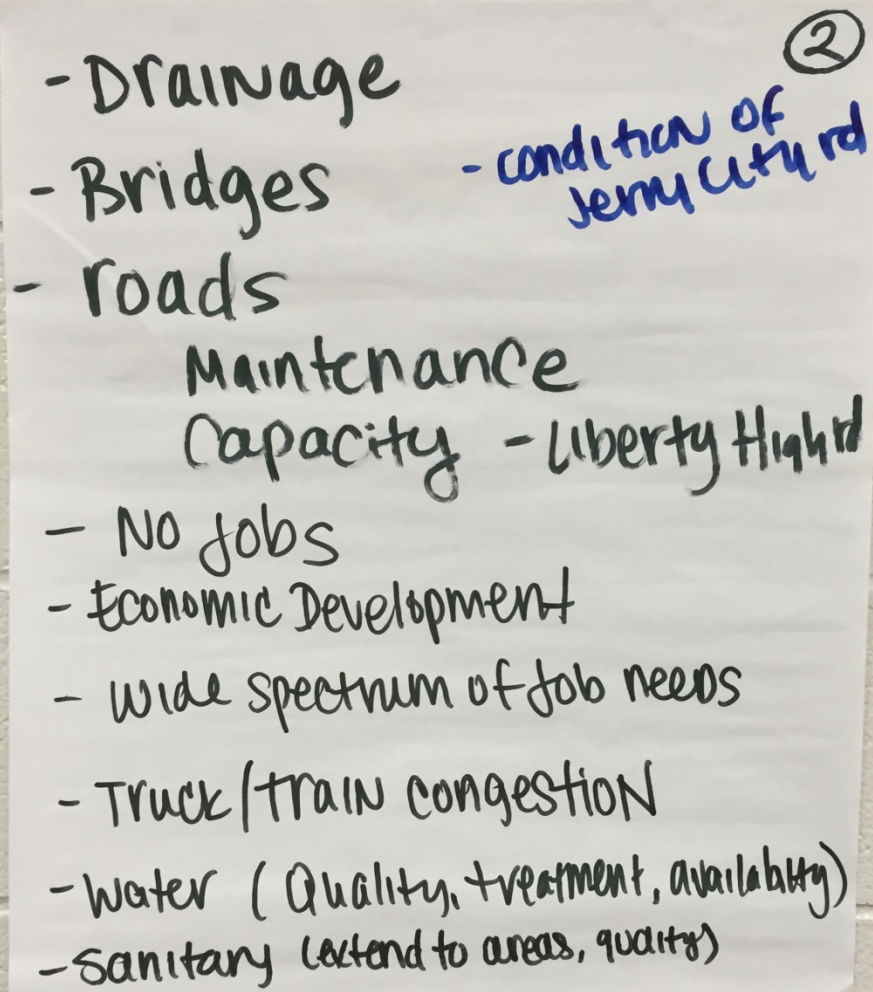 2
- Drainage
- Bridges
- condition of
Jerry City rd
- roads
Maintenance
Capacity - Liberty High rd
- No Jobs
- Economic Development
- Wide spectrum of Job needs
- Truck/train congestion
- Water (Quality, treatment, availability)
- Sanitary (extend to areas, quality)